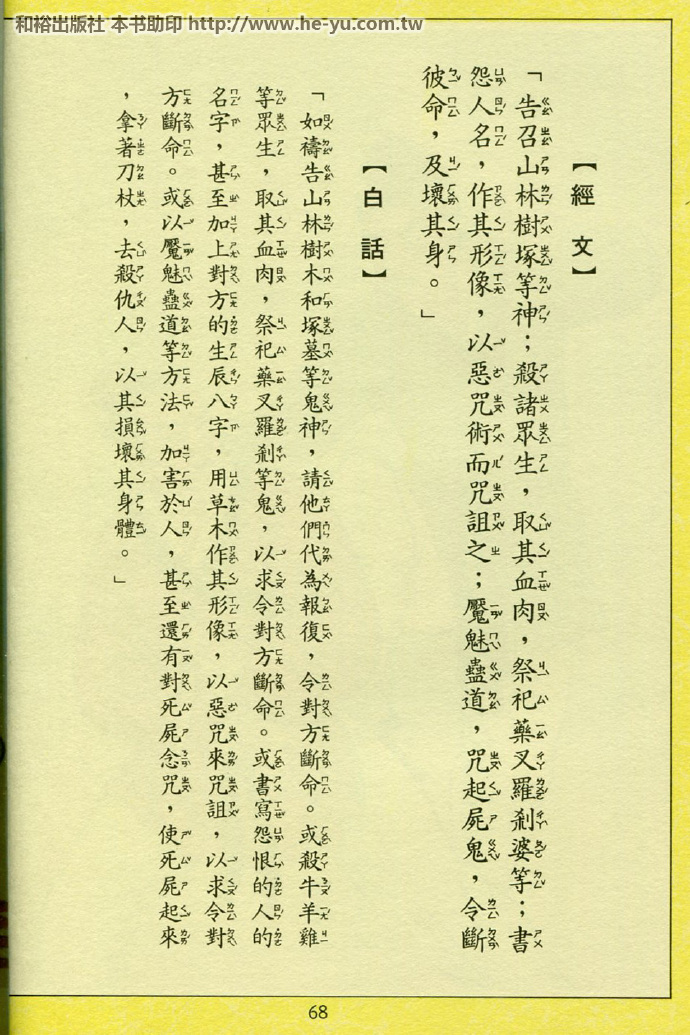 和裕出版社 本书助印 http://www.he-yu.com.tw
【經文】
「告召山林樹塚等神；殺諸眾生，取其血肉，祭祀藥叉羅剎婆等；書
怨人名，作其形像，以惡咒術而咒詛之；魘魅蠱道，咒起屍鬼，令斷
彼命，及壞其身。」
【白話】
「如禱告山林樹木和塚墓等鬼神，請他們代為報復，令對方斷命。或殺牛羊雞
等眾生，取其血肉，祭祀藥叉羅剎等鬼，以求令對方斷命。或書寫怨恨的人的
名字，甚至加上對方的生辰八字，用草木作其形像，以惡咒來咒詛，以求令對
方斷命。或以魘魅蠱道等方法，加害於人，甚至還有對死屍念咒，使死屍起來
，拿著刀杖，去殺仇人，以其損壞其身體。」
68